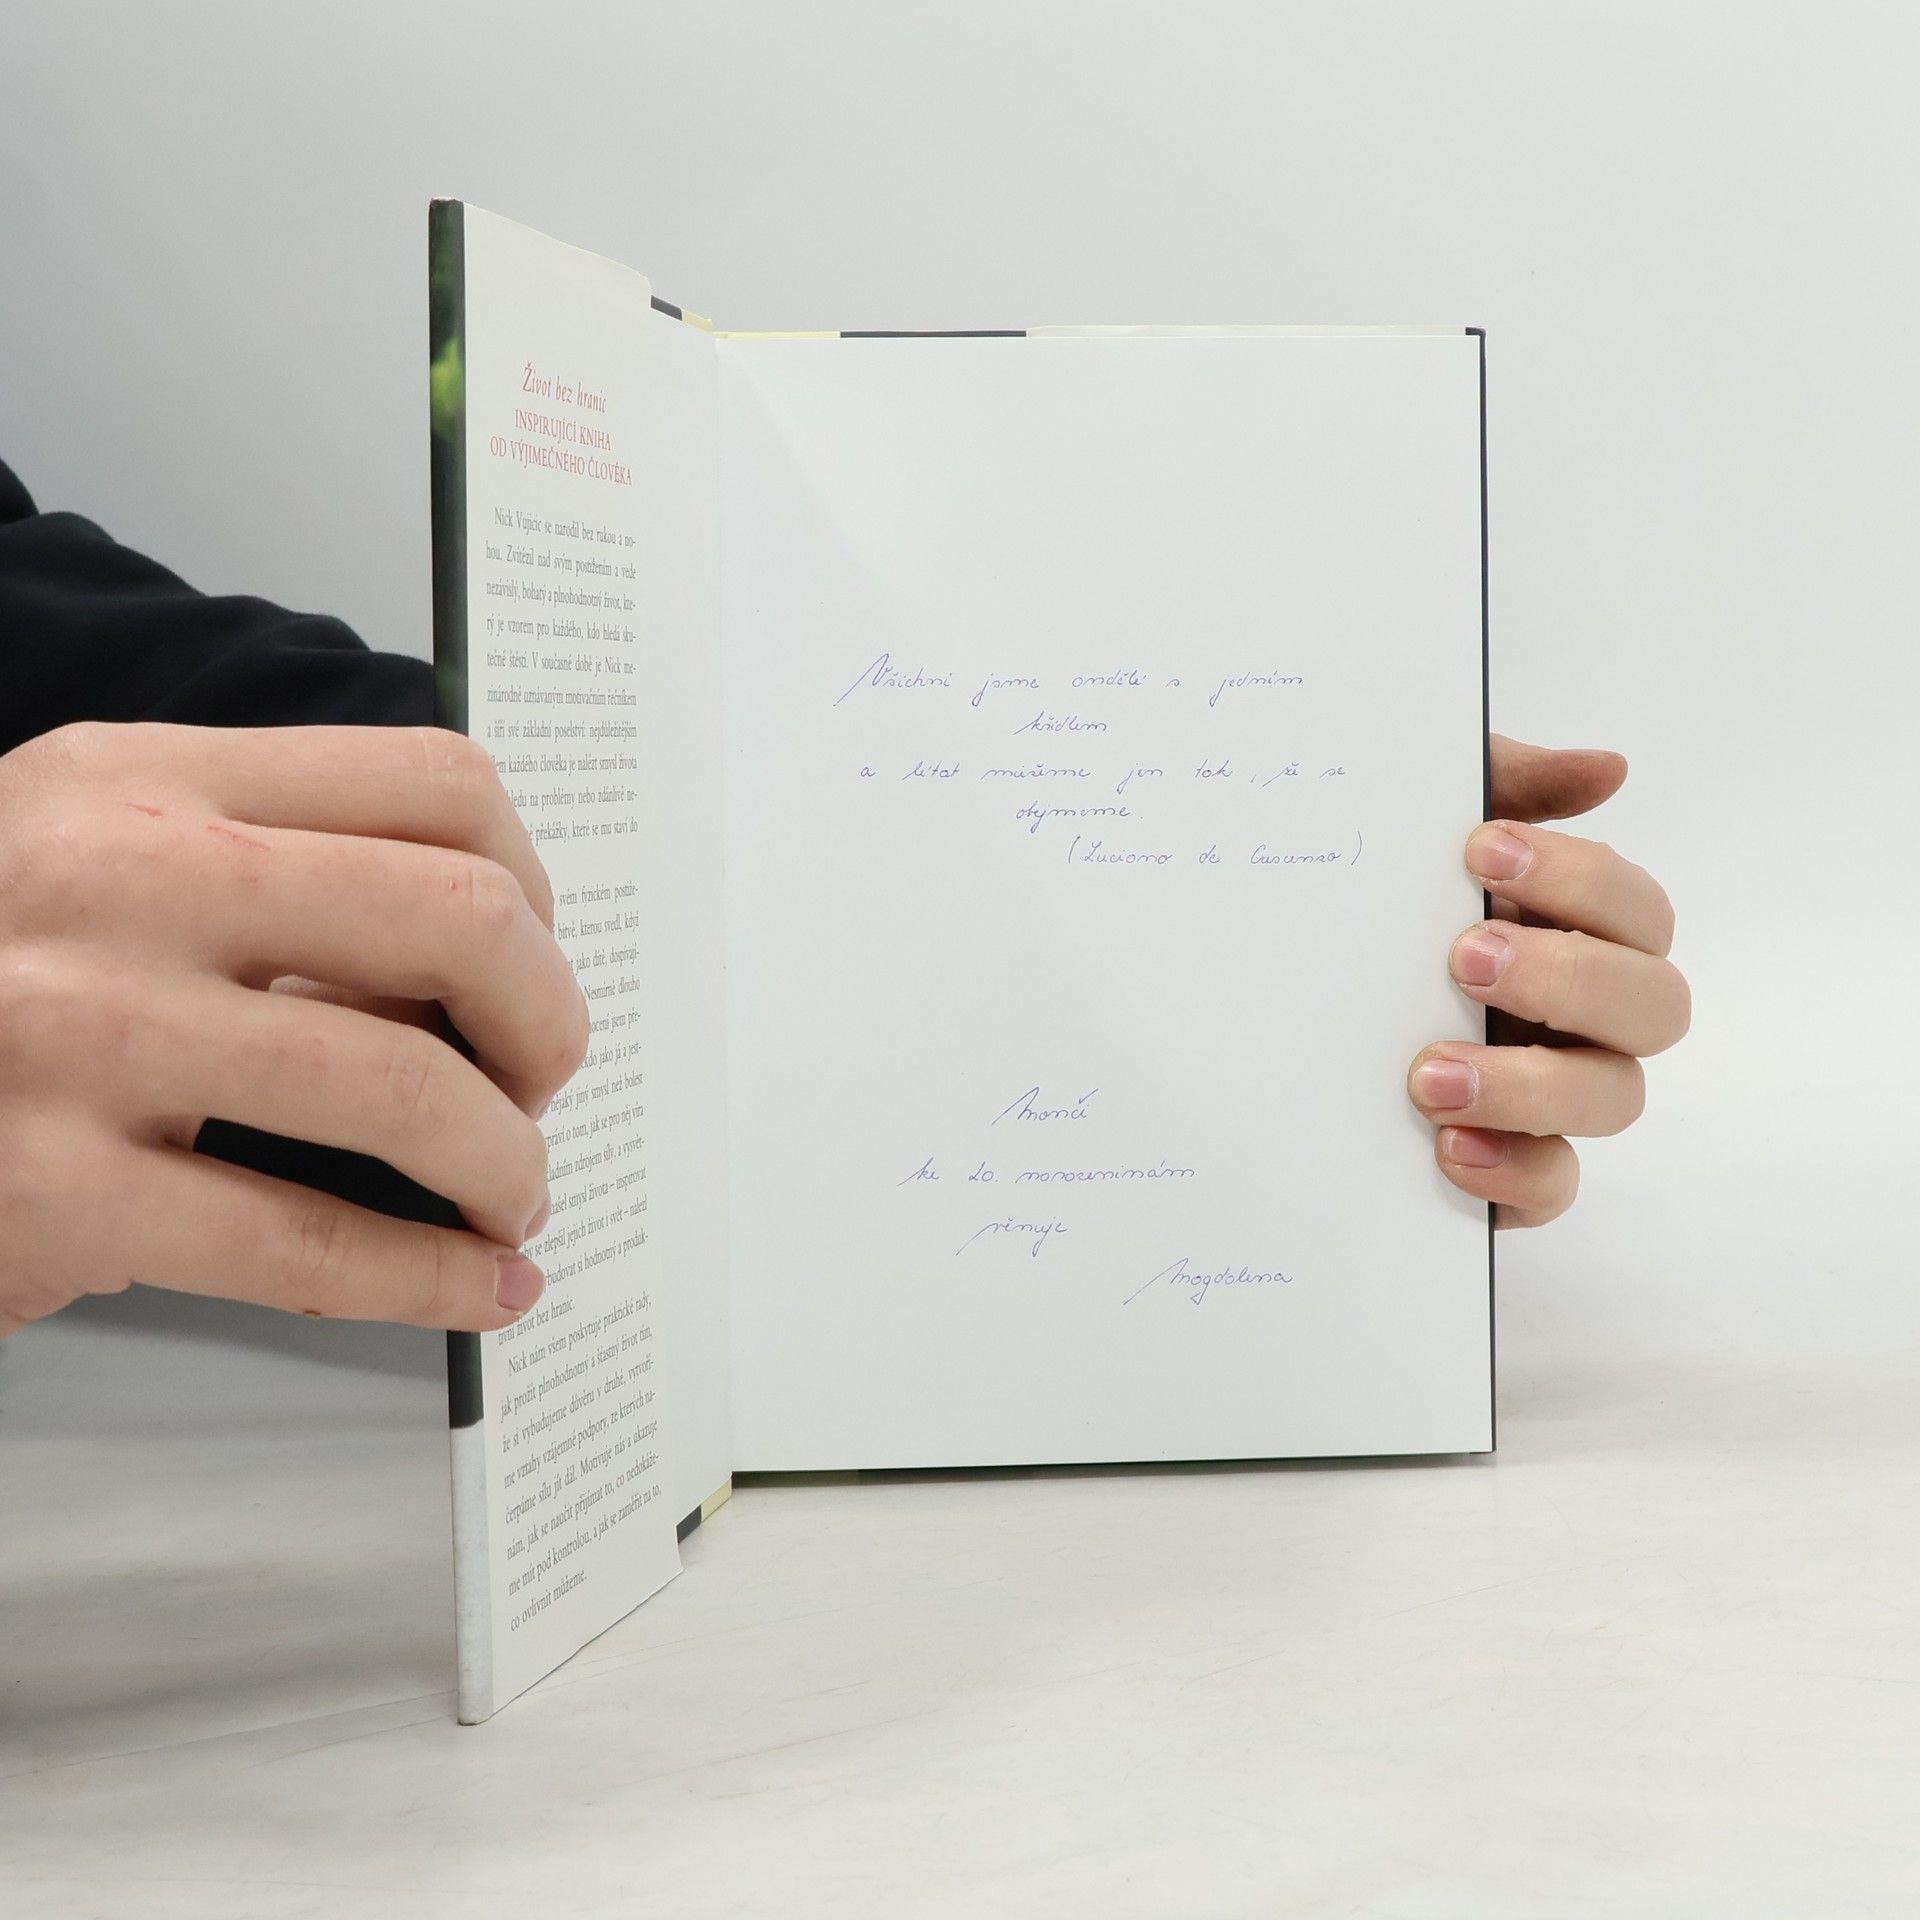 Život bez hranic
INSPIRUJÍCÍ KNIHA
OD VÝJIMEČNÉHO ČLOVĚKA
Nick Vujicic se narodil bez rukou a no-
hou. Zvítězil nad svým postižením a vede
nezávislý, bohatý a plnohodnotný život, kte-
rý je vzorem pro každého, kdo hledá sku-
tečné štěstí. V současné době je Nick me-
zinárodně uznávaným motivačním řečníkem
a šíří své základní poselství: nejdůležitějším
každého člověka je nalézt smysl života
na problémy nebo zdánlivě ne-
překážky, které se mu staví do
svém fyzickém postiže-
bitvě, kterou svedl, když
jako dítě, dospívají-
Nesmírně dlouho
jsem pře-
jako já a jest-
nějaký jiný smysl než bolest
o tom, jak se pro něj víra
zdrojem síly, a vysvět-
smysl života – inspirovat
se zlepšil jejich život i svět – nalezl
si hodnotný a produk-
tivní život bez hranic.
Nick nám všem poskytuje praktické rady,
jak prožít plnohodnotný a šťastný život tím,
že si vybudujeme důvěru v druhé, vytvoří-
me vztahy vzájemné podpory, ze kterých na-
čerpáme sílu jít dál. Motivuje nás a ukazuje
nám, jak se naučit přijímat to, co nedokáže-
me mít pod kontrolou, a jak se zaměřit na to,
co ovlivnit můžeme.
Všichni jsme andělé s jedním
křídlem
a létat můžeme jen tak, že se
obejmeme.
(Luciano de Crescenzo)
Monči
ke 20. narozeninám
věnuje
Magdalena